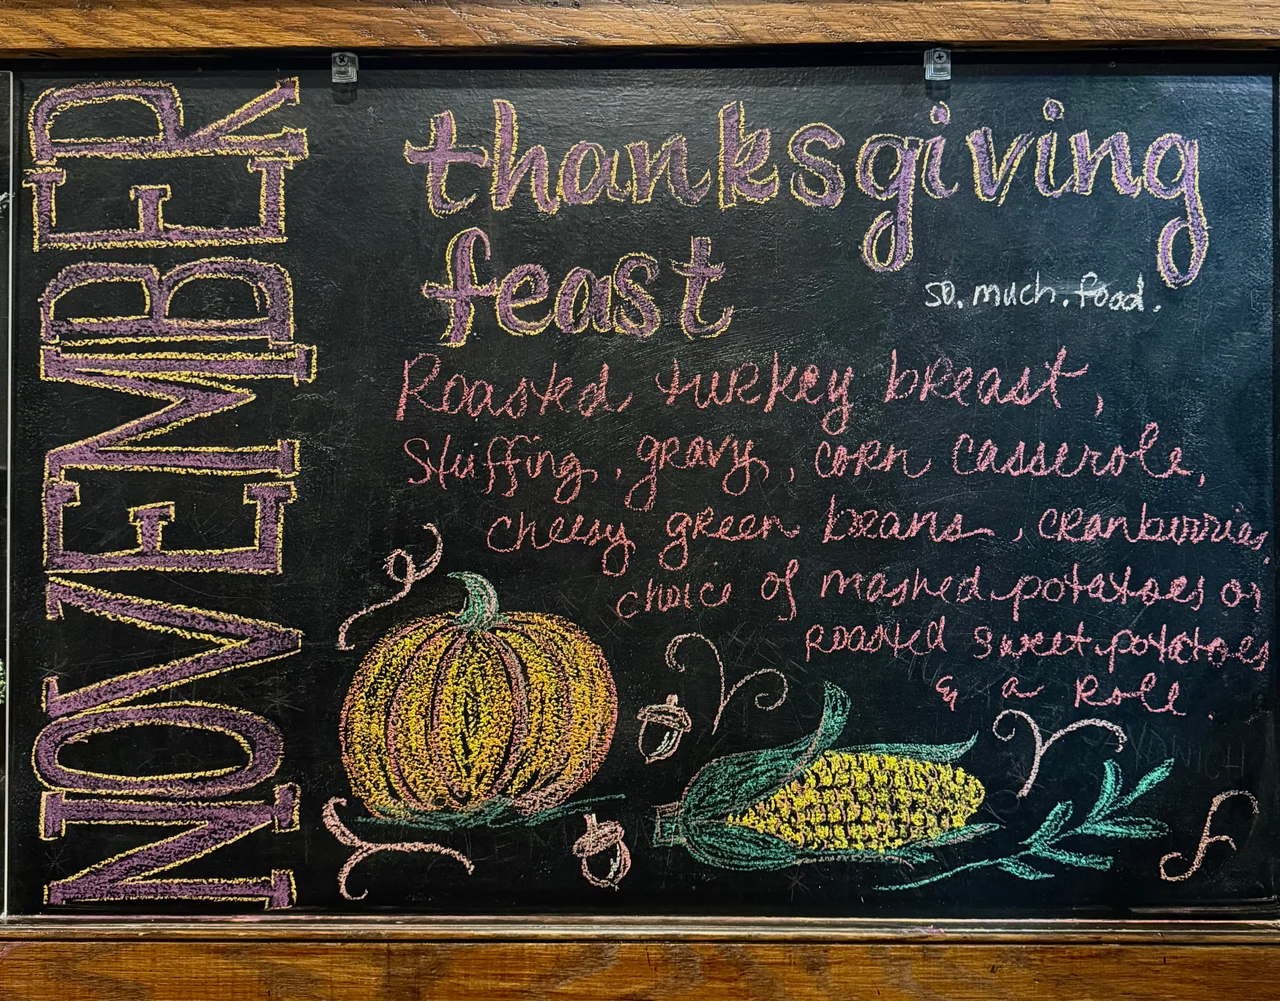 NOVEMBER
thanksgiving
feast
so.much.food.
Roasted turkey breast,
Stuffing, gravy, corn casserole,
cheesy green beans, cranberries,
choice of mashed potatoes or
roasted sweet potatoes
& a Roll.